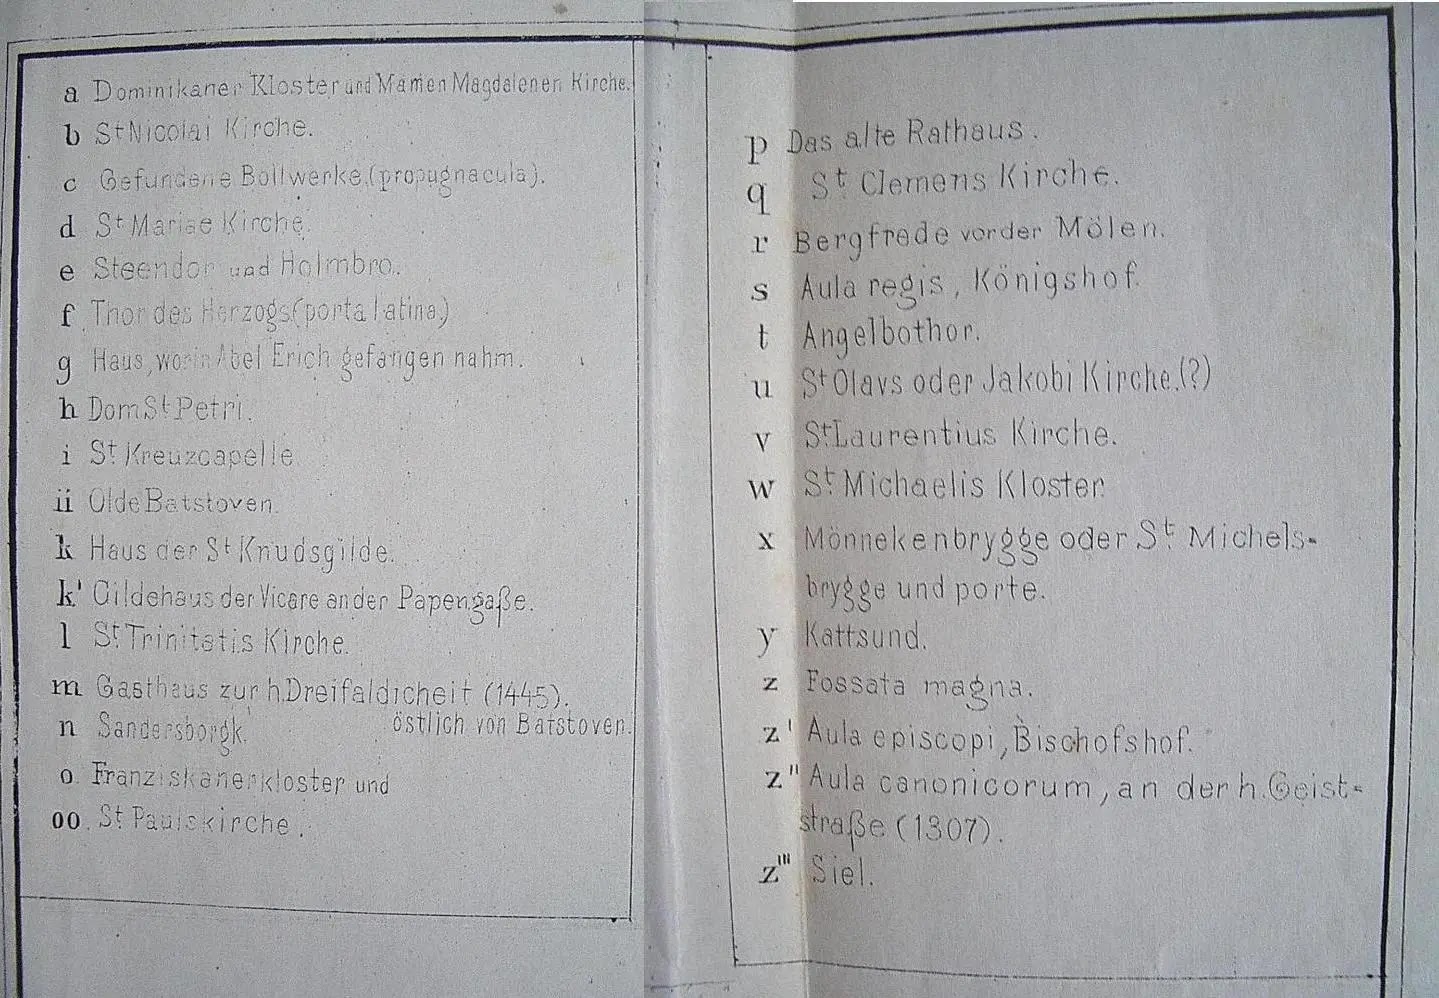 a Dominikaner Kloster und Marien Magdalenen Kirche.
b St Nicolai Kirche.
c Gefundene Bollwerke (propugnacula).
d St Mariae Kirche.
e Steendor und Holmbro.
f Thor des Herzogs (porta latina)
g Haus, worin Abel Erich gefangen nahm.
h Dom St Petri.
i St Kreuzcapelle
ii Olde Batstoven.
k Haus der St Knudsgilde.
k' Gildehaus der Vicare an der Papengaße.
l St Trinitatis Kirche.
m Gasthaus zur h. Dreifaldicheit (1445).
östlich von Batstoven.
n Sandersborgk.
o. Franziskanerkloster und
oo. St Paulskirche.
p Das alte Rathaus.
q St Clemens Kirche.
r Bergfrede vor der Mölen.
s Aula regis, Königshof.
t Angelbothor.
u St Olavs oder Jakobi Kirche. (?)
v St Laurentius Kirche.
w St Michaelis Kloster.
x Mönnekenbrygge oder St Michels-
brygge und porte.
y Kattsund.
z Fossata magna.
z' Aula episcopi, Bischofshof.
z" Aula canonicorum, an der h. Geist-
straße (1307).
z''' Siel.